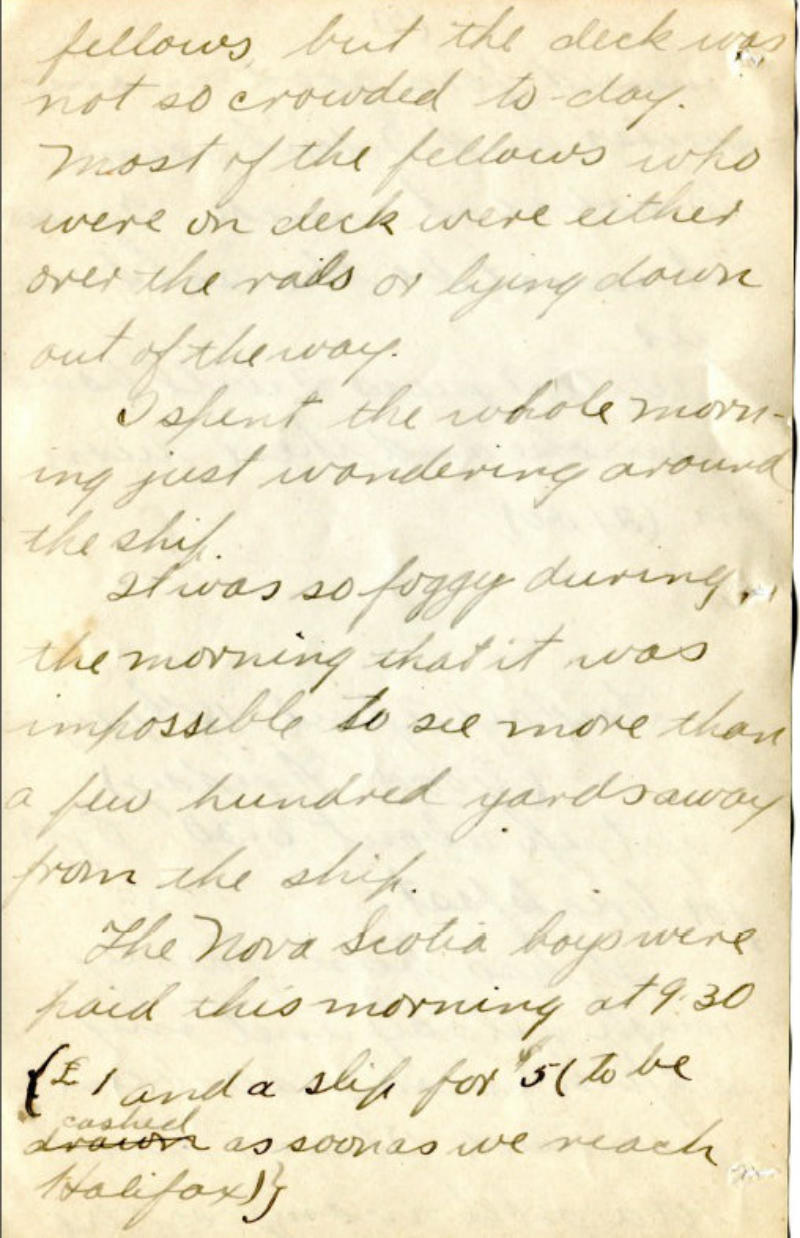 fellows, but the deck was
not so crowded to-day.
Most of the fellows who
were on deck were either
over the rails or lying down
out of the way.
I spent the whole morn-
ing just wandering around
the ship.
It was so foggy during
the morning that it was
impossible to see more than
a few hundred yards away
from the ship.
The Nova Scotia boys were
paid this morning at 9.30
{£1 and a slip for $5 (to be
cashed
drawn as soon as we reach
Halifax)}